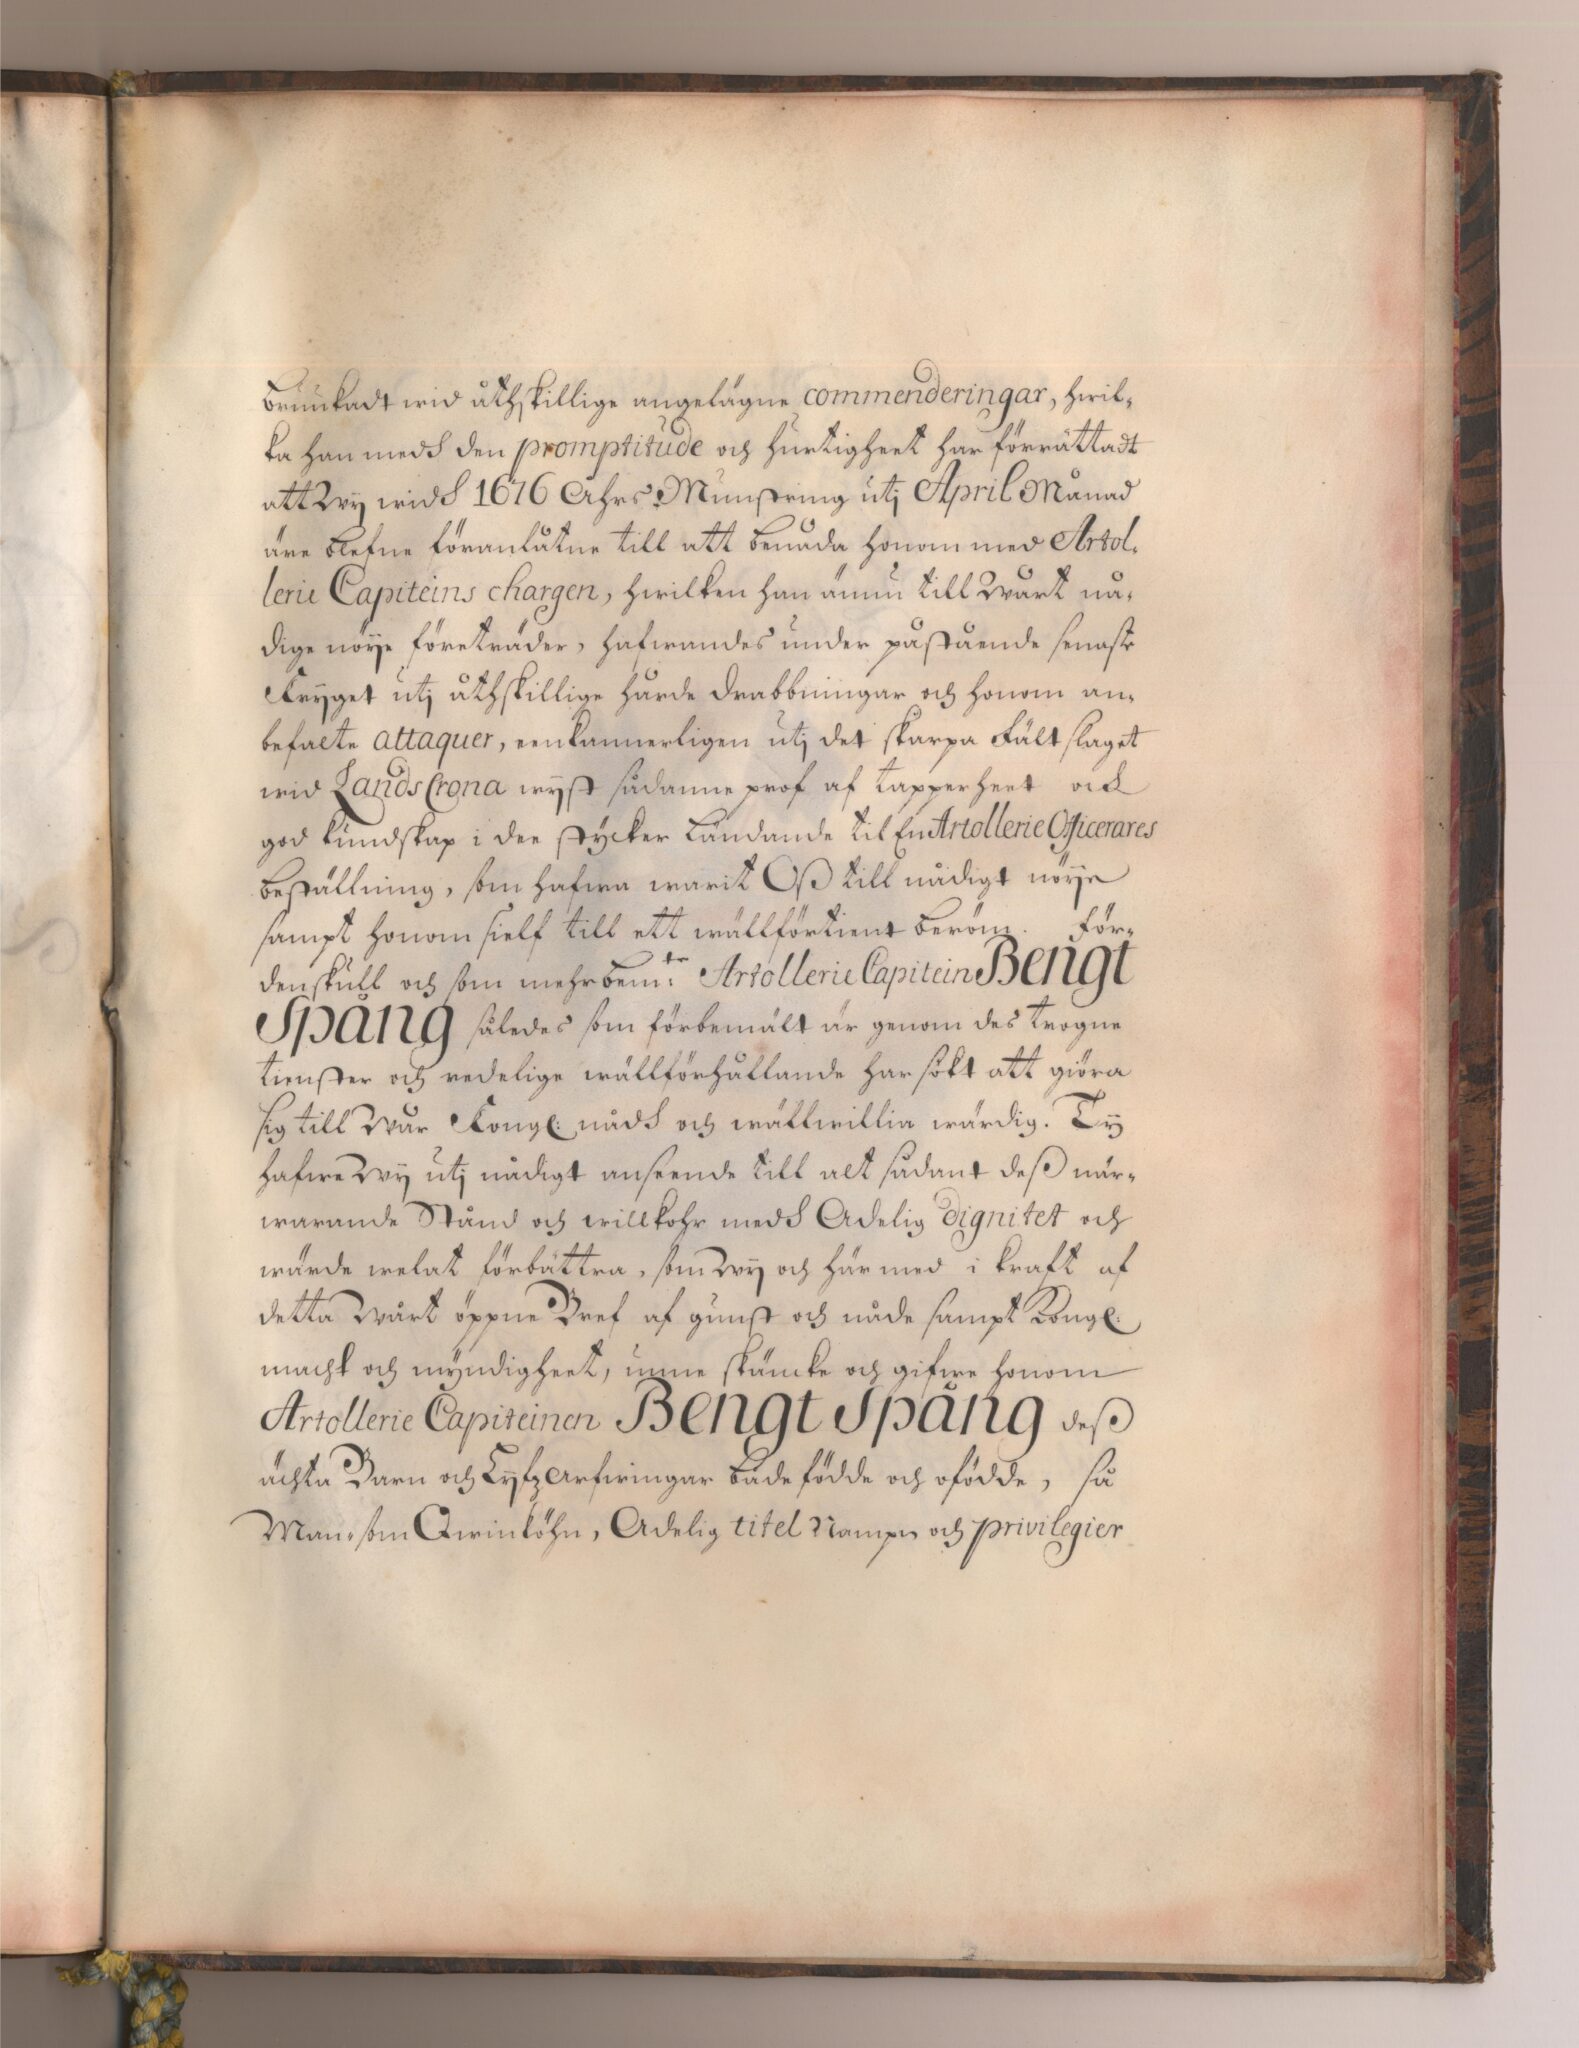 brukadt wid åthskillige angelägne commenderingar, hwil-
ka han medh den promptitude och hurtigheet har förrättadt
att Wij widh 1676 Åhrs Munstring utj April Månad
äre blefne föranlåtne till att benåda honom med Artol-
lerie Capiteins chargen, hwilken han ännu till Wårt nå-
dige nöye företräder, hafwandes under påstående senaste
Kryget utj åthskillige hårde drabbningar och honom an-
befalte attaquer, eenkannerligen utj det skarpa Fältslaget
wid LandsCrona wyst sådanne prof af tapperheet och
god kundskap i dee stycker ländande til En Artollerie Officerares
beställning, som hafwa warit Oß till nådigt nöye
sampt honom sielf till ett wällförtient beröm. För-
denskull och som mehrbem:te Artollerie Capitein Bengt
Spång således som förbemält är genom des trogne
tienster och redelige wällförhållande har sökt att giöra
sig till Wår Kongl: nådh och wällwillia wärdig. Ty
hafwe Wij utj nådigt anseende till alt sådant deß när-
warande Stånd och willkohr medh Adelig dignitet och
wärde welat förbättra, som Wij och här med i kraft af
detta Wårt öppne Bref af gunst och nåde sampt Kongl:
macht och myndigheet, unne skäncke och gifwe honom
Artollerie Capiteinen Bengt Spång deß
ächta Barn och Lyfzarfwingar både födde och ofödde, så
Man- som Qwinköhn, Adelig titel Nampn och privilegier